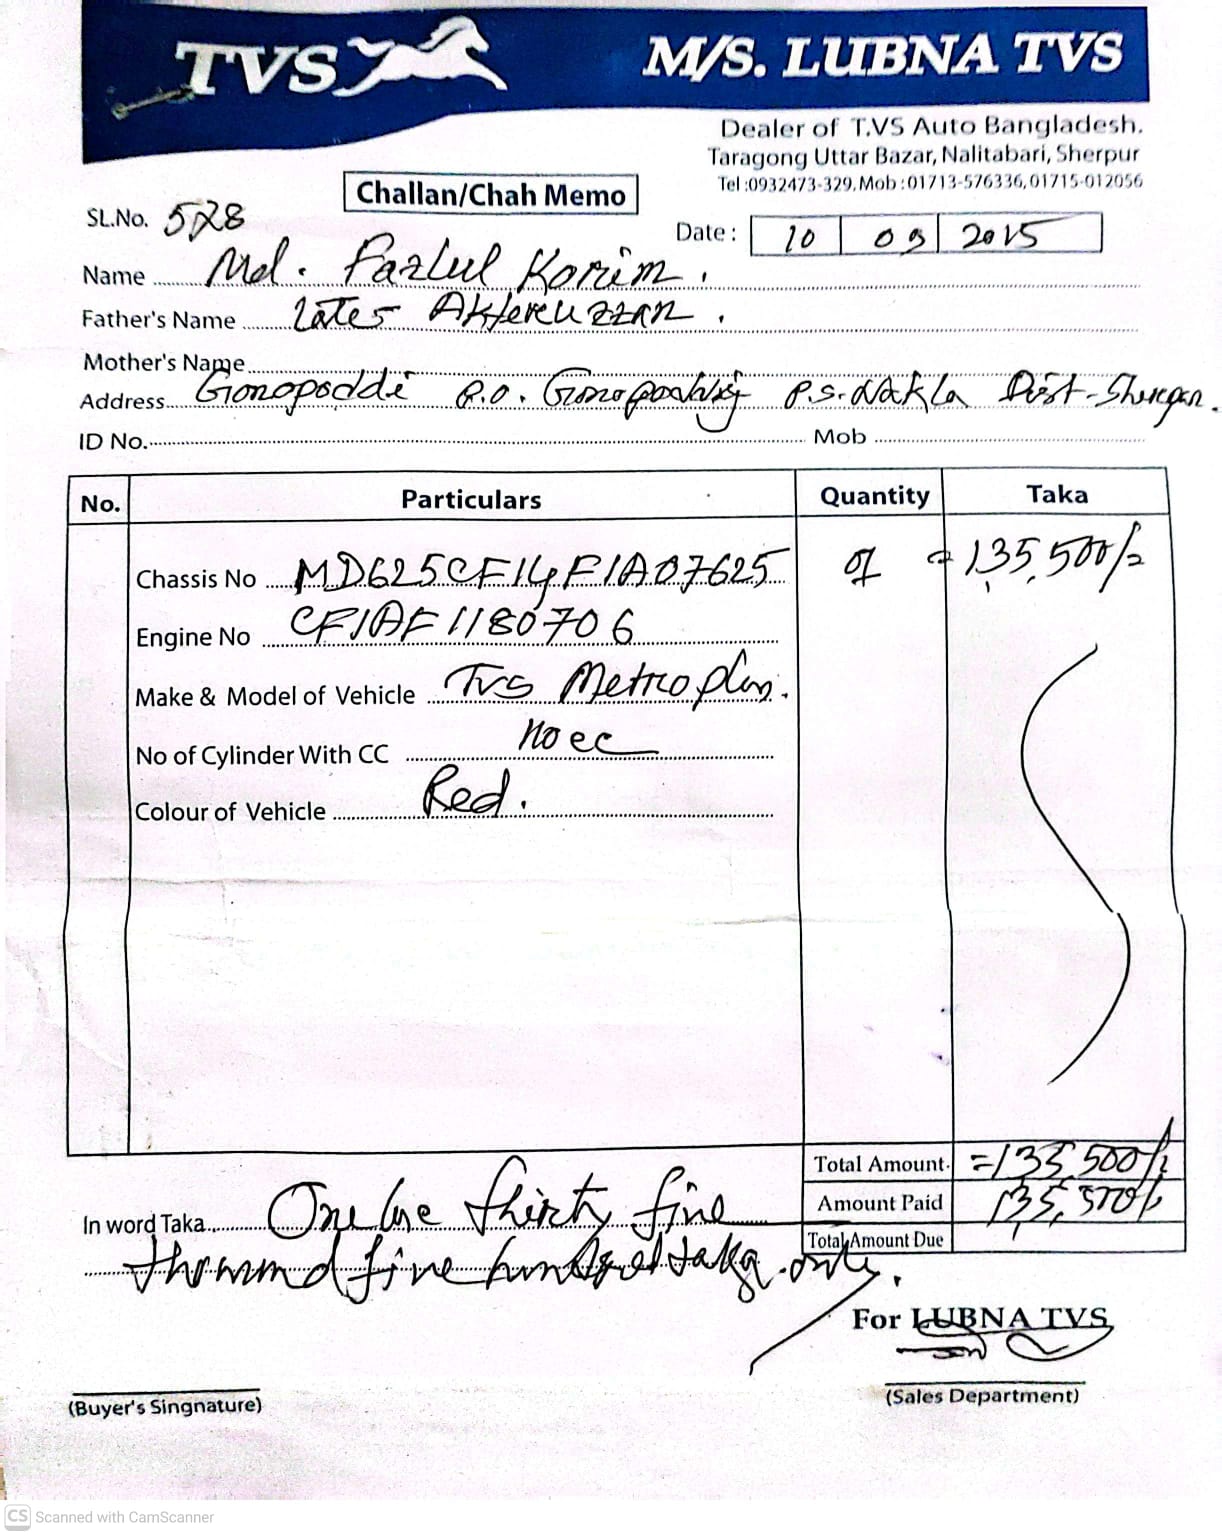 TVS M/S. LUBNA TVS
Dealer of T.VS Auto Bangladesh.
Taragong Uttar Bazar, Nalitabari, Sherpur
Tel :0932473-329, Mob : 01713-576336, 01715-012056
Challan/Chah Memo
SL.No. 528
Date : 10 09 2015
Name Md. Fazlul Korim.
Father's Name Late Akteruzzan.
Mother's Name
Address Gonopoddi P.O. P.S. Nakla Dist-Sherpur.
ID No. Mob
No. Particulars Quantity Taka
Chassis No MD625CF14F1A07625 01 = 135,500/=
Engine No CF1AF1180706
Make & Model of Vehicle Tvs Metro plus.
No of Cylinder With CC
Colour of Vehicle Red.
Total Amount. =135,500/=
Amount Paid 135,500/=
Total Amount Due
In word Taka One lac thirty five
thousand five hundred taka only.
For LUBNA TVS
(Buyer's Singnature) (Sales Department)
CS Scanned with CamScanner